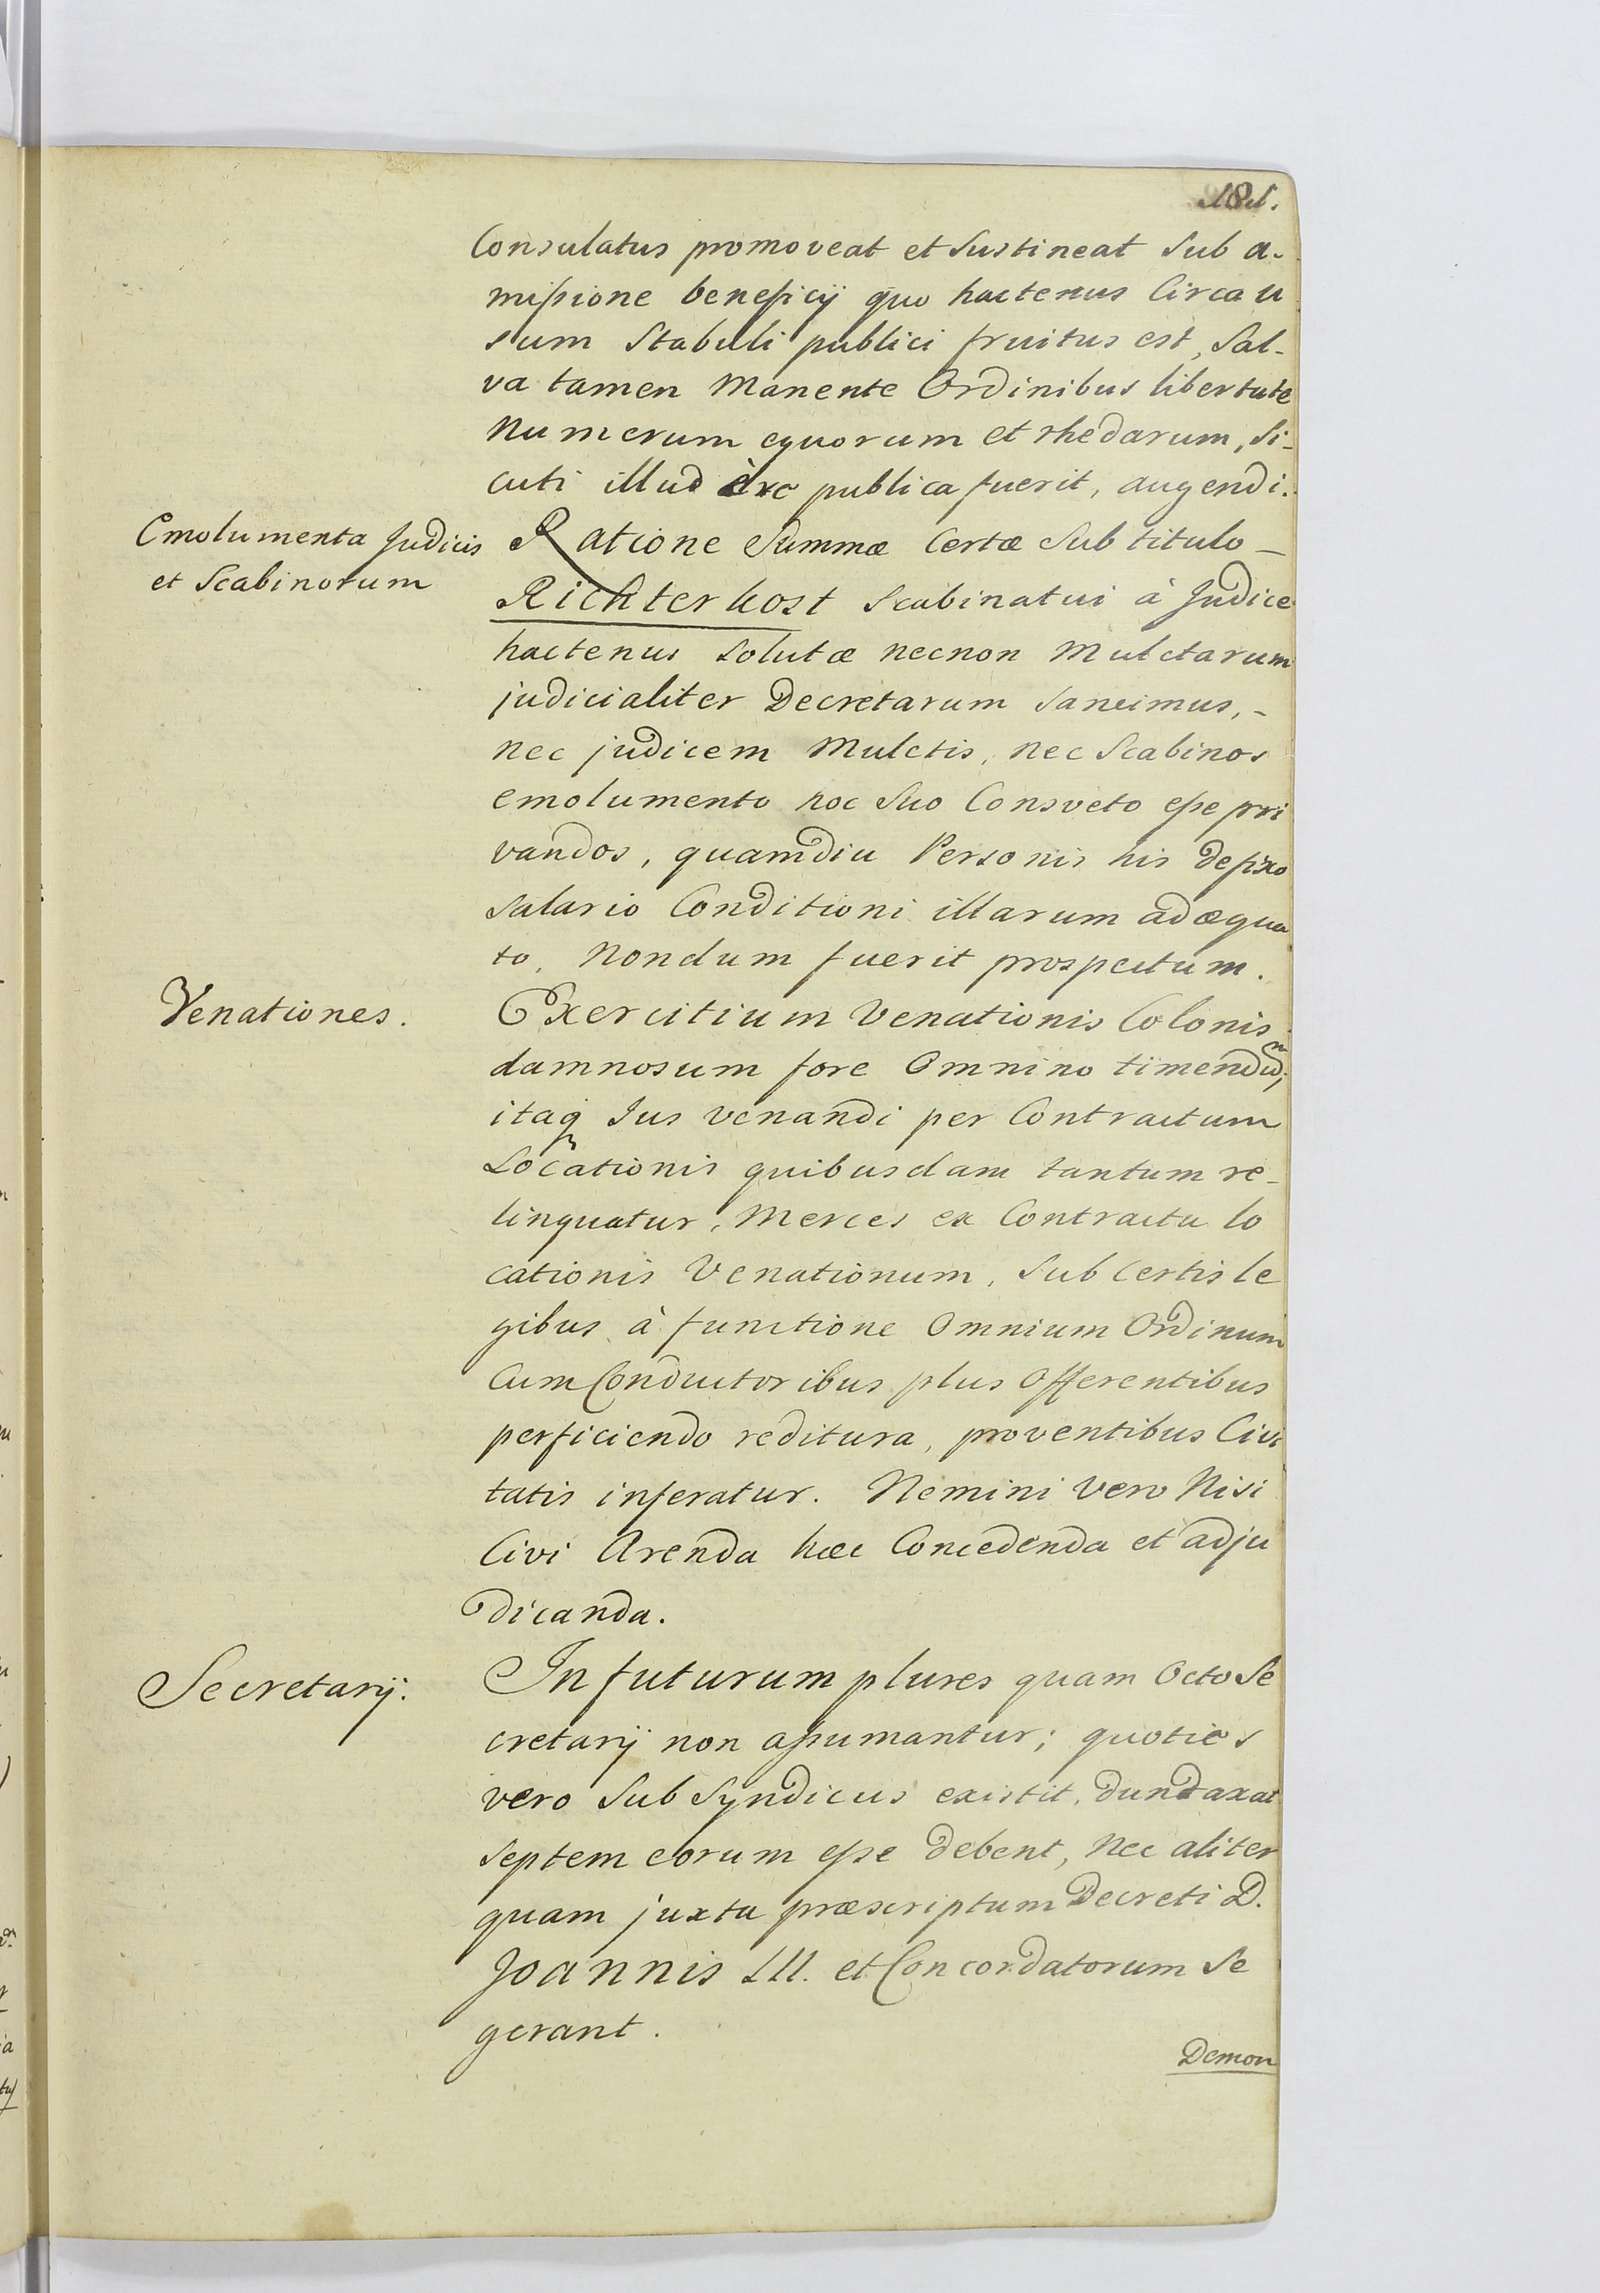 181.
Consulatus promoveat et Sustineat Sub a-
missione beneficij quo hactenus Circa u
sum Stabuli publici fruitus est, Sal-
va tamen Manente Ordinibus libertate
Numerum equorum et rhedarum, Si-
cuti illud è re publica fuerit, augendi.
Emolumenta Judicis
et Scabinorum
Ratione Summæ Certæ Sub titulo -
Richterkost Scabinatui à Judice
hactenus Solutæ necnon Mulctarum
judicialiter Decretarum Sancimus, -
nec judicem Mulctis, nec Scabinos
emolumento hoc Suo Consveto esse pri
vandos, quamdiu Personis his de fixo
Salario Conditioni illarum adæqua
to, Nondum fuerit prospectum.
Venationes.
Exercitium Venationis Colonis
damnosum fore Omnino timendũ;
itaq Jus venandi per Contractum
Locationis quibusdam tantum re-
linquatur, Merces ex Contractu lo
cationis Venationum, Sub certis le
gibus à functione Omnium Ordinum
Cum Conductoribus plus Offerentibus
perficiendo reditura, proventibus Civi
tatis inferatur. Nemini vero Nisi
Civi Arenda hæc Concedenda et adju
dicanda.
Secretarij.
In futurum plures quam Octo Se
cretarij non assumantur; quoties
vero Sub Syndicus existit, duntaxat
Septem eorum esse debent, Nec aliter
quam juxta præscriptum Decreti D.
Joannis III. et Concordatorum Se
gerant.
Demon